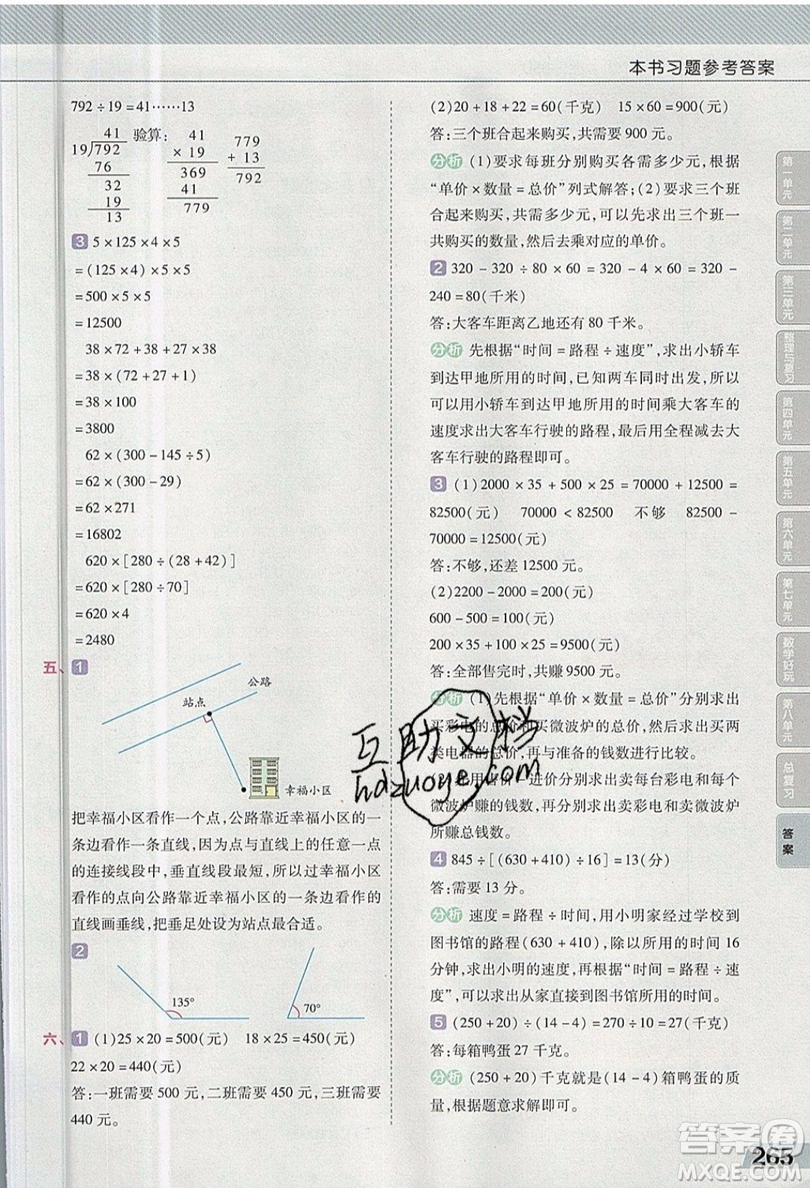 本书习题参考答案
792÷19=41……13
41
19/792
76
32
19
13
验算: 41
×19
369
41
779
779
+13
792
3 5×125×4×5
=(125×4)×5×5
=500×5×5
=12500
38×72+27×38+38
=38×(72+27+1)
=38×100
=3800
62×(300-145÷5)
=62×(300-29)
=62×271
=16802
620×[280÷(28+42)]
=620×[280÷70]
=620×4
=2480
五、1
公路
站点
幸福小区
把幸福小区看作一个点,公路靠近幸福小区的一
条边看作一条直线,点与直线上的任意一点
的连接线段中,垂直线段最短,所以过幸福小区
看作的点向公路靠近幸福小区的一条边看作的
直线画垂线,把垂足处设为站点最合适。
2
135°
70°
六、1 (1)25×20=500(元) 18×25=450(元)
22×20=440(元)
答:一班需要500元,二班需要450元,三班需要
440元。
(2)20+18+22=60(千克) 15×60=900(元)
答:三个班合起来购买,共需要900元。
分析 (1)要求每班分别购买各需多少元,根据
“单价×数量=总价”列式解答;(2)要求三个班
合起来购买,共需多少元,可以先求出三个班一
共购买的数量,然后去乘对应的单价。
2 320-320÷80×60=320-4×60=320-
240=80(千米)
答:大客车距离乙地还有80千米。
分析 先根据“时间=路程÷速度”,求出小轿车
到达甲地所用的时间,已知两车同时出发,所以
可以用小轿车到达甲地所用的时间乘大客车的
速度求出大客车行驶的路程,最后用全程减去大
客车行驶的路程即可。
3 (1)2000×35+500×25=70000+12500=
82500(元) 70000<82500 不够 82500-
70000=12500(元)
答:不够,还差12500元。
(2)2200-2000=200(元)
600-500=100(元)
200×35+100×25=9500(元)
答:全部售完时,共赚9500元。
分析 (1)先根据“单价×数量=总价”分别求出
买彩电的总价和买微波炉的总价,从而求出买两
类电器的总价,再与准备的钱数进行比较。
(2)先用售价-进价分别求出卖每台彩电和每个
微波炉赚的钱数,再求出卖这些彩电和微波炉
所赚总钱数。
4 845÷[(630+410)÷16]=13(分)
答:需要13分。
分析 速度=路程÷时间,用小明家经过学校到
图书馆的路程(630+410),除以所用的时间16
分钟,求出小明的速度,再根据“时间=路程÷速
度”,可以求出从家直接到图书馆所用的时间。
5 (250+20)÷(14-4)=270÷10=27(千克)
答:每箱鸭蛋27千克。
分析 (250+20)千克就是(14-4)箱鸭蛋的质
量,根据题意求解即可。
第一单元
第二单元
第三单元
整理与复习
第四单元
第五单元
第六单元
第七单元
数学好玩
第八单元
总复习
答案
互助文档
hdzuoye.com
答案圈
MXQE.COM
265